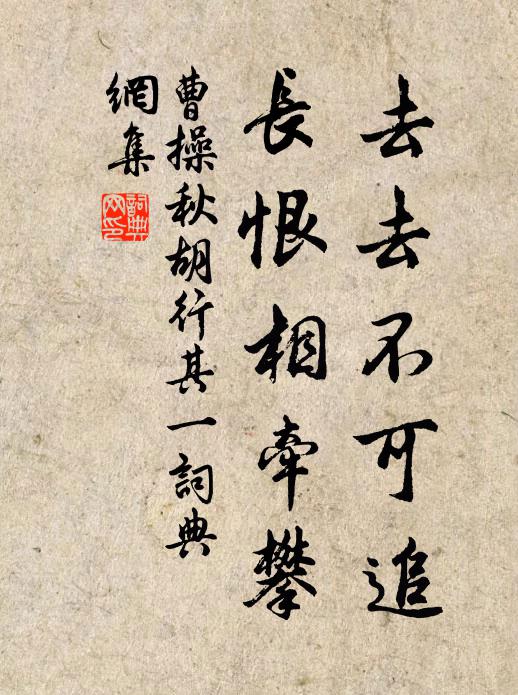 去去不可追
長恨相牽攀
曹操秋胡行其一詞典
網集
詞典網印